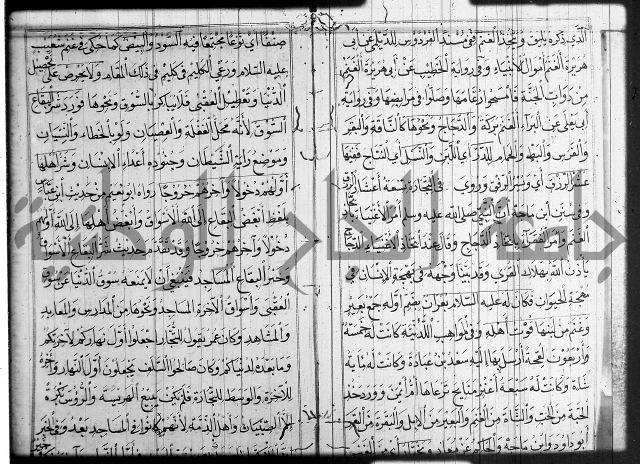 الذي ذكره بلون وتخذ الغنم ففي مسند الفردوس للديلمي عن أبي
هريرة الغنم أموال الأنبياء وفي رواية الخطيب عن أبي هريرة الغنم
من دواب الجنة فامسحوا رغامها وصلوا في مرابضها وفي رواية
أبي يعلى عن البراء الغنم بركة والدجاج ونحوها كالناقة والبقر
والفرس والبهم والحمام للدر أي اللبن والنسل أي النتاج ففيها
عشر الرزق أي وسائر الرزق وروي في التجارة تسعة أعشار الرزق
وفي سنن ابن ماجة أن النبي صلى الله عليه وسلم أمر الأغنياء باتخاذ
الغنم وأمر الفقراء باتخاذ الدجاج وقال عند اتخاذ الأغنياء الدجاج
يأذن الله بهلاك القرى وقد بينا وجهه في بهجة الإنسان في
مهجة الحيوان وكان له عليه السلام بعران بضم أوله جمع بعير
وغنم من لبنها قوت أهله وفي المواهب اللدنية كانت له خمسة
وأربعون لقحة أرسل بها إليه سعد بن عبادة وكانت له مائة
شاة وكانت له سبعة أعنز منايح ترعاها أم أيمن وورد تخذ
الجنة من الحب والشاة من الغنم والبعير من الإبل والبقرة من البقر
أبو داود وابن ماجة والحاكم عن معاذ
صنفا أي نوعا مجتمعا فيه السود والبيض كما حكي في غنم شعيب
عليه السلام ورعي الكليم في كليم في ذلك المقام ولا يحرص على تحصيل
الدنيا وتعطيل العقبى فلا يباكر بالسوق ونحوها فورد شر البقاع
السوق لأنه محل الغفلة والعصيان ولغو الخطاء والنسيان
وموضع راية الشيطان وجنوده أعداء الإنسان وشر أهلها
أولهم دخولا وآخرهم خروجا رواه أبو نعيم من حديث ابن عباس
بلفظ أبغض البقاع إلى الله الأسواق وأبغض أهلها إلى الله أولهم
دخولا وآخرهم خروجا وقد تقدم حديث شر البقاع الأسواق
وخير البقاع المساجد فينبغي أن لا يمنعه سوق الدنيا عن سوق
العقبى وأسواق الآخرة المساجد ونحوها من المدارس والمعابد
والمشاهد وكان عمر يقول للتجار اجعلوا أول نهاركم لآخرتكم
وما بعده لدنياكم وكان صالحوا السلف يجعلون أول النهار وآخره
للآخرة والوسط للتجارة فلم يكن يبيع الهريسة والرؤس بكرة
إلا الصبيان وأهل الذمة لأنهم كانوا في المساجد بعد وفي الخبر
جامعة الملك سعود